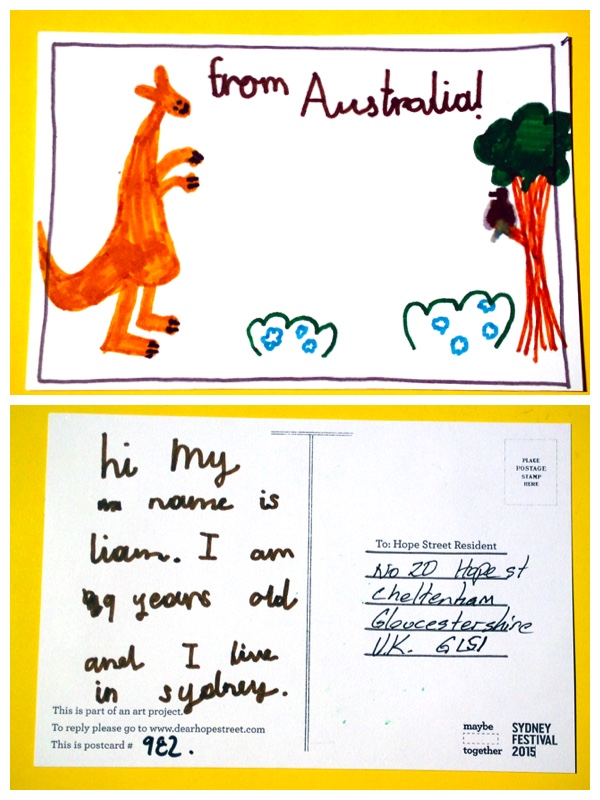 from Australia!
hi My
name is
liam. I am
9 years old
and I live
in sydney.
This is part of an art project.
To reply please go to www.dearhopestreet.com
This is postcard # 982.
PLACE
POSTAGE
STAMP
HERE
To: Hope Street Resident
No 20 Hope st
Cheltenham
Gloucestershire
U.K. GL51
maybe
together
SYDNEY
FESTIVAL
2015